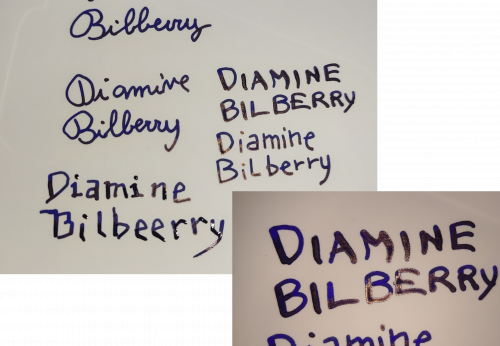 Bilberry
Diamine
Bilberry
DIAMINE
BILBERRY
Diamine
Bilberry
Diamine
Bilbeerry
DIAMINE
BILBERRY
Diamine